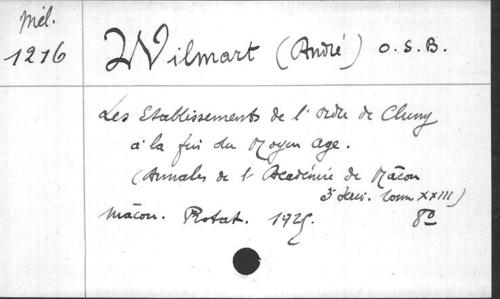 Mél.
1216
Wilmart (André) O.S.B.
Les Etablissements de l'ordre de Cluny
à la fin du Moyen Age.
(Annales de l'Académie de Mâcon
3e Série. tome XXIII)
Mâcon. Protat. 1925. 8°